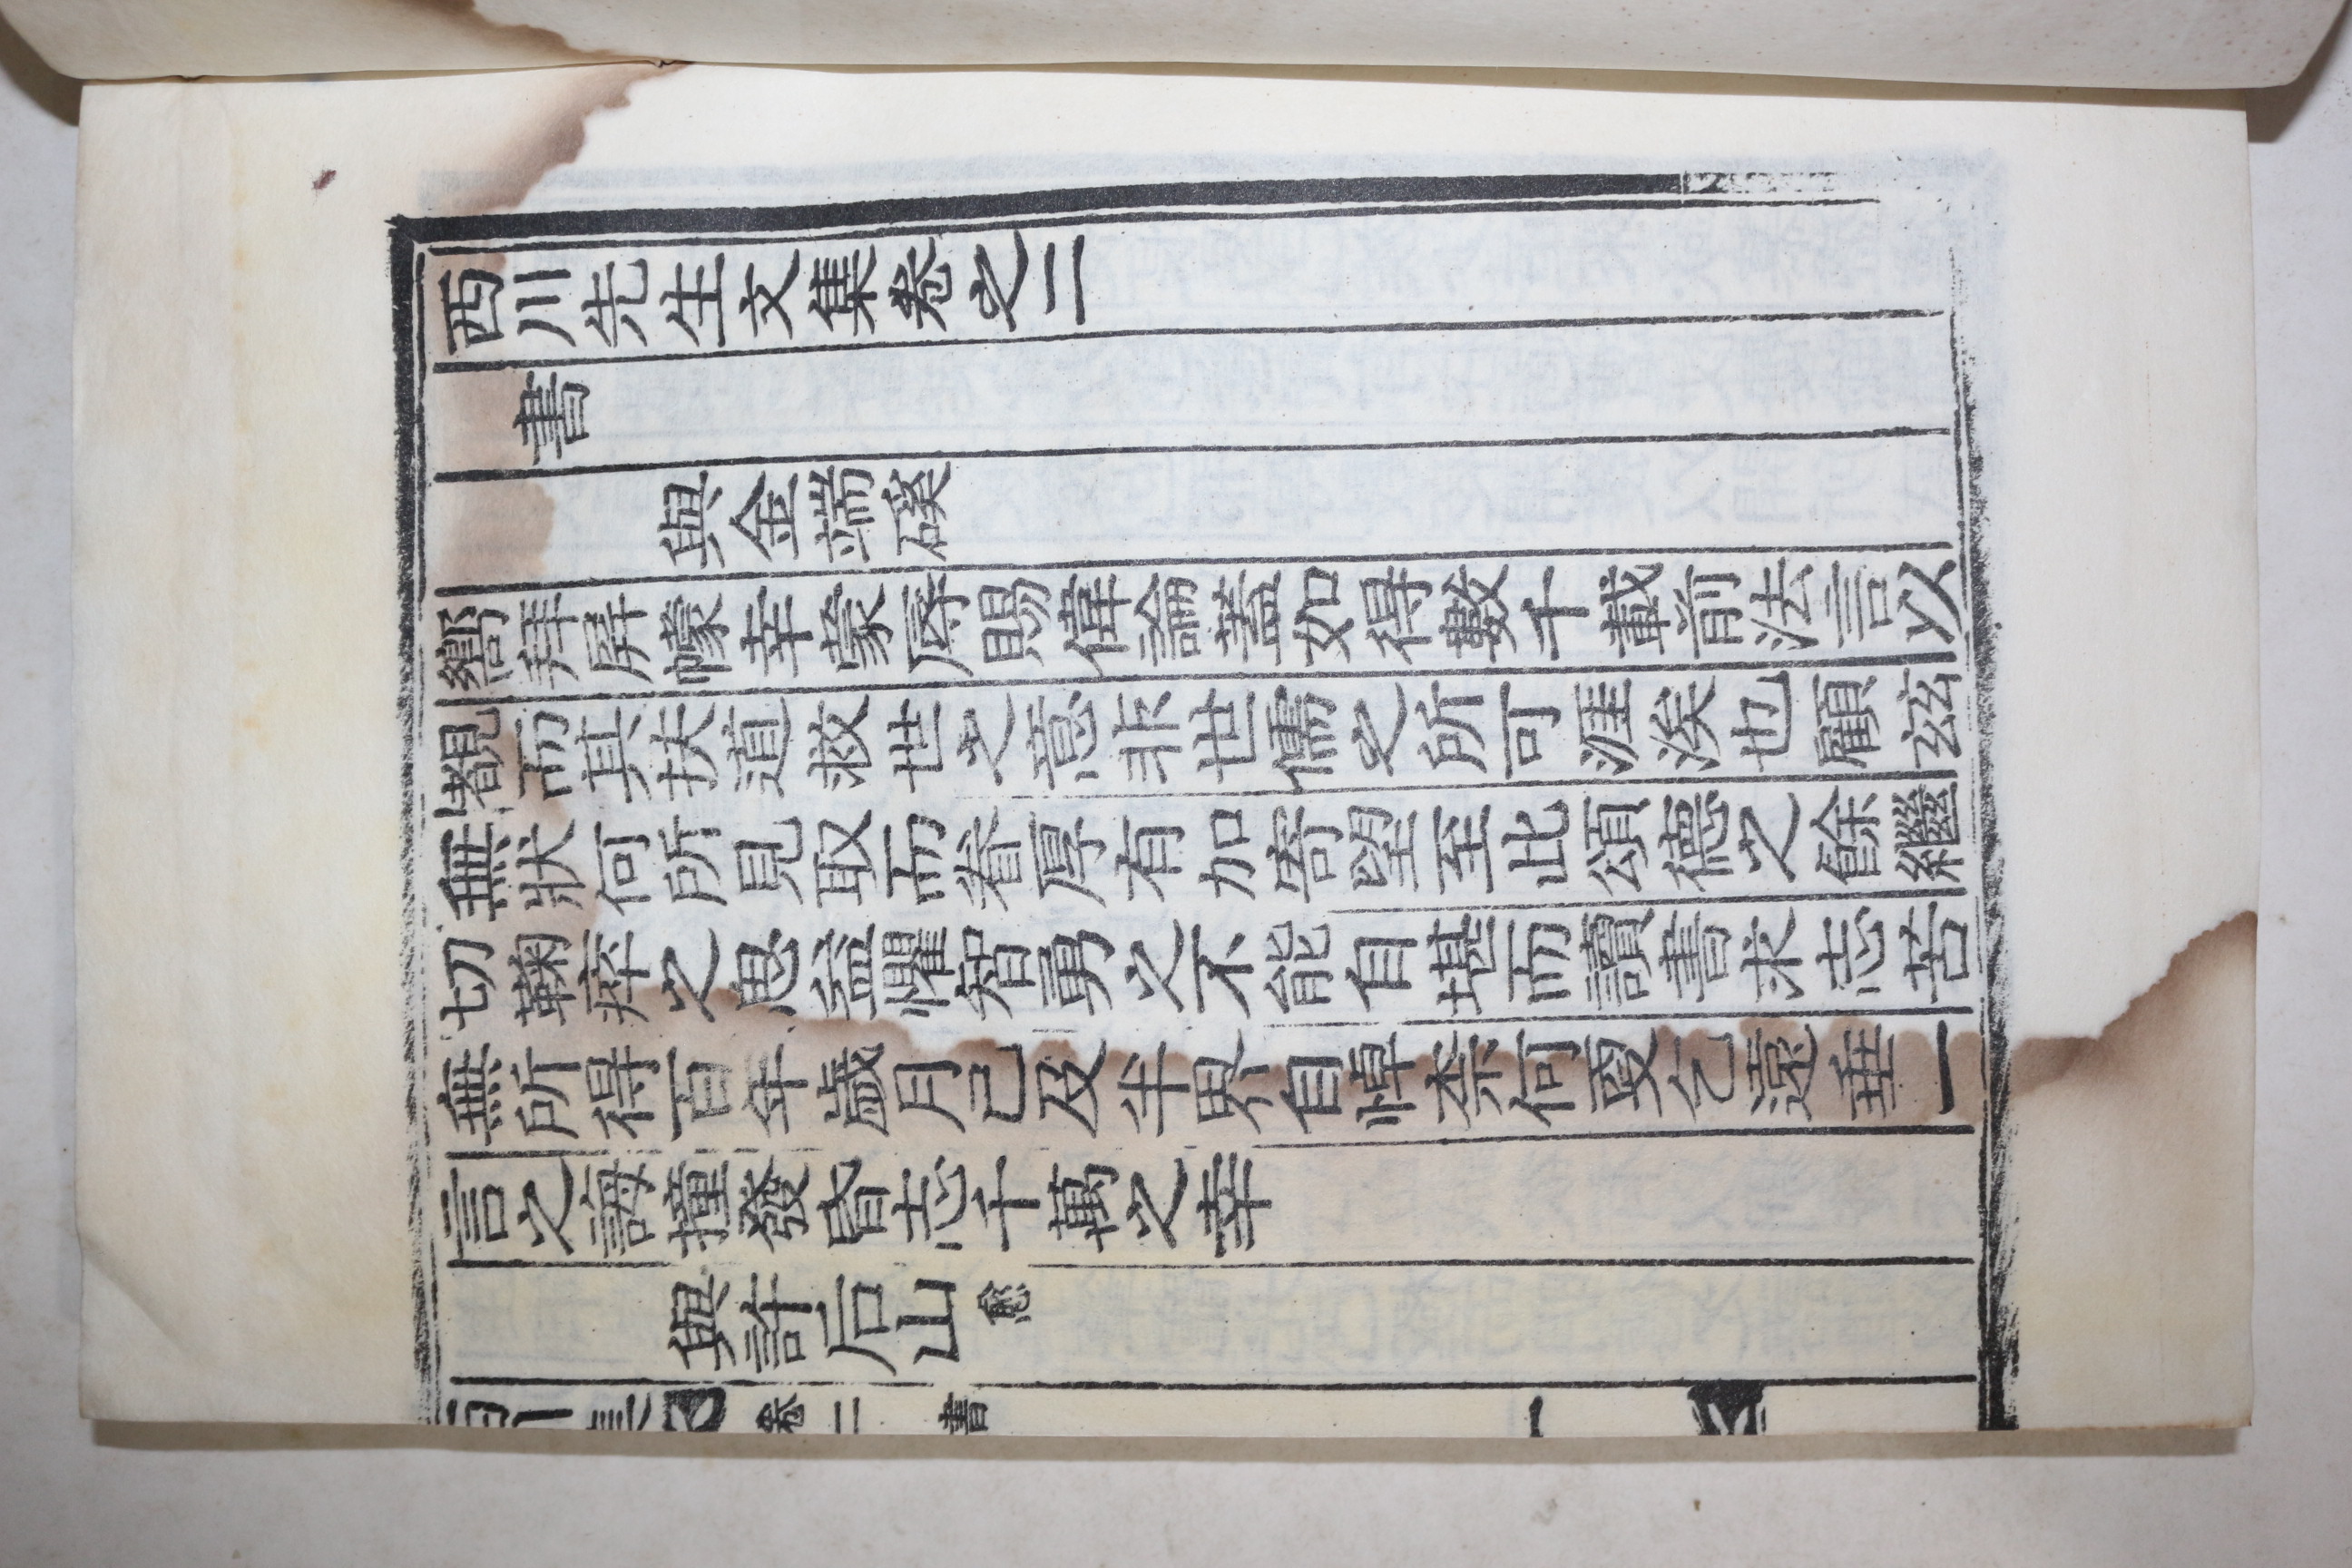 西川先生文集卷之二
書
與金端磎
嚮拜屛幪幸蒙辱賜偉論蓋如得數千載前法言以
覩而其扶道救世之意非世儒之所可涯涘也顧玆
無狀何所見取而眷厚有加寄望至此頌德之餘繼
切鞠瘁之思益懼智勇之不能自堪而讀書求志苦
無所得百年歲月已及半界自悼柰何更乞遠垂一
言之誨撞發昏志千萬之幸
與許后山愈
西川集 卷二 書 一